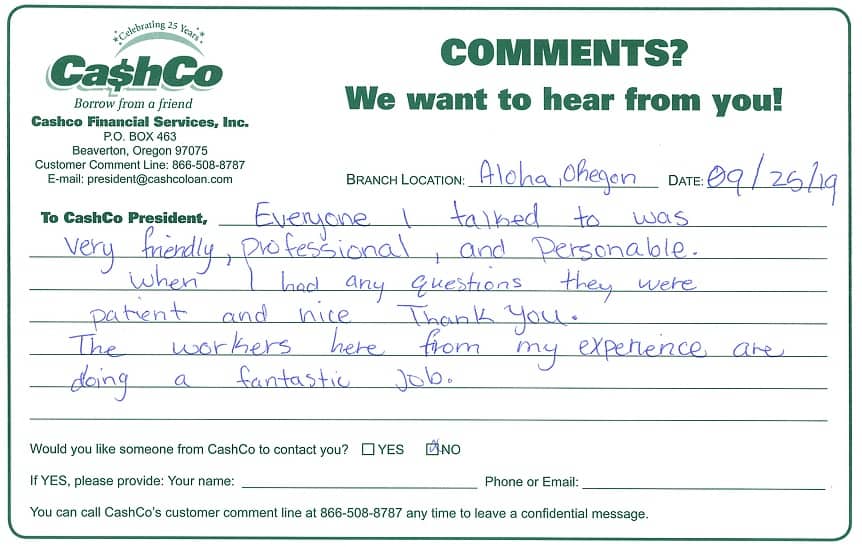 Celebrating 25 Years
Ca$hCo
Borrow from a friend
Cashco Financial Services, Inc.
P.O. BOX 463
Beaverton, Oregon 97075
Customer Comment Line: 866-508-8787
E-mail: president@cashcoloan.com
COMMENTS?
We want to hear from you!
BRANCH LOCATION: Aloha, Oregon DATE: 09/25/19
To CashCo President, Everyone I talked to was
very friendly, professional, and Personable.
When I had any questions they were
patient and nice Thank You.
The workers here from my experience are
doing a fantastic Job.
Would you like someone from CashCo to contact you? ☐ YES ☑ NO
If YES, please provide: Your name: Phone or Email:
You can call CashCo's customer comment line at 866-508-8787 any time to leave a confidential message.